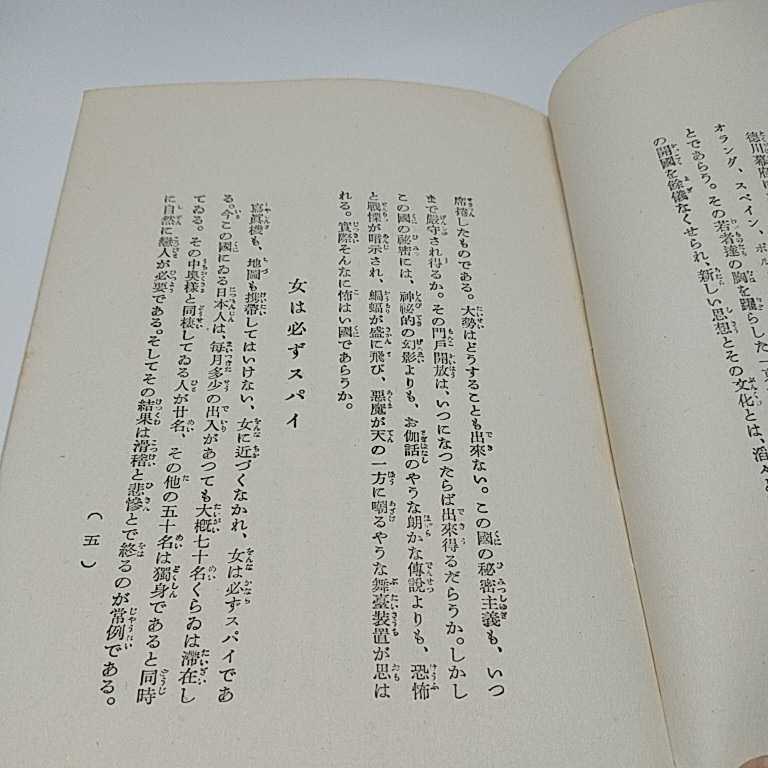 徳川幕府
オランダ、スペイン、ポル
とであらう。その若者達の胸を躍らした一
の開國を餘儀なくせられ、新しい思想とその文化とは、滔々と
席捲したものである。大勢はどうすることも出來ない。この國の秘密主義も、いつ
まで嚴守され得るか。その門戸開放は、いつになつたらば出來得るだらうか。しかし
この國の秘密には、神祕的の幻影よりも、お伽話のやうな朗かな傳說よりも、恐怖
と戰慄が暗示され、蝙蝠が盛に飛び、惡魔が天の一方に嘲るやうな舞臺装置が思は
れる。實際そんなに怖はい國であらうか。
女は必ずスパイ
寫眞機も、地圖も携帶してはいけない、女に近づくなかれ、女は必ずスパイであ
る。今この國にゐる日本人は、毎月多少の出入があつても大槪七十名くらゐは滯在し
てゐる。その中奥様と同棲してゐる人が廿名、その他の五十名は獨身であると同時
に自然に戀人が必要である。そしてその結果は滑稽と悲慘とで終るのが常例である。
(五)